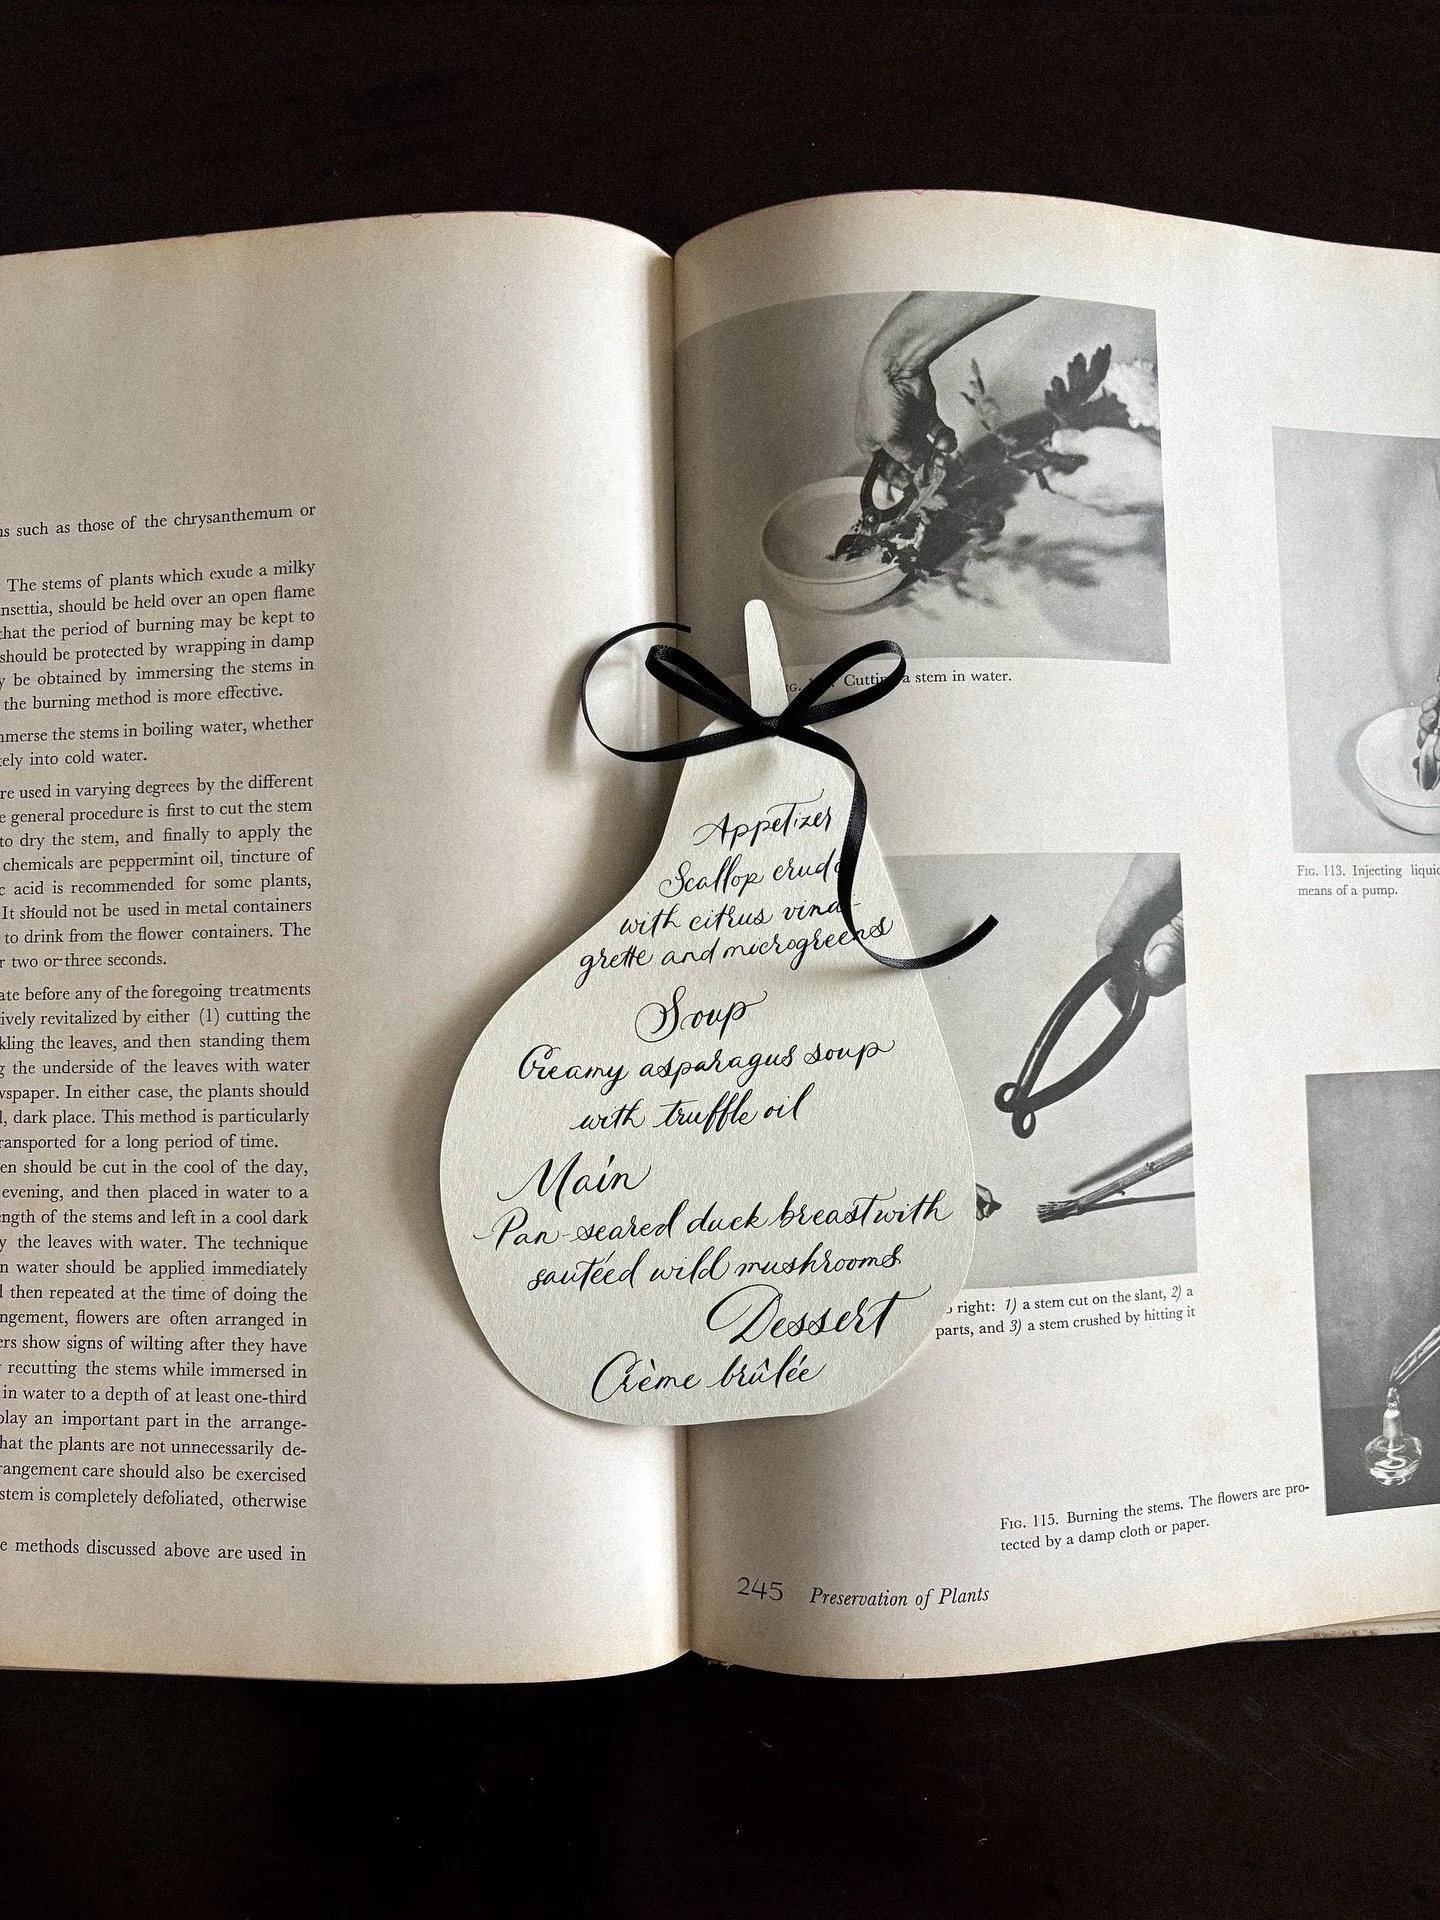 such as those of the chrysanthemum or
The stems of plants which exude a milky
should be held over an open flame
that the period of burning may be kept to
should be protected by wrapping in damp
be obtained by immersing the stems in
the burning method is more effective.
the stems in boiling water, whether
into cold water.
used in varying degrees by the different
general procedure is first to cut the stem
to dry the stem, and finally to apply the
chemicals are peppermint oil, tincture of
acid is recommended for some plants,
It should not be used in metal containers
to drink from the flower containers. The
two or three seconds.
before any of the foregoing treatments
revitalized by either (1) cutting the
the leaves, and then standing them
the underside of the leaves with water
In either case, the plants should
dark place. This method is particularly
for a long period of time.
should be cut in the cool of the day,
evening, and then placed in water to a
of the stems and left in a cool dark
the leaves with water. The technique
water should be applied immediately
then repeated at the time of doing the
flowers are often arranged in
show signs of wilting after they have
recutting the stems while immersed in
in water to a depth of at least one-third
play an important part in the arrange-
that the plants are not unnecessarily de-
care should also be exercised
stem is completely defoliated, otherwise
methods discussed above are used in
Cutting a stem in water.
Appetizer
Scallop crudo
with citrus vinai-
grette and microgreens
Soup
Creamy asparagus soup
with truffle oil
Main
Pan-seared duck breast with
sautéed wild mushrooms
Dessert
Crème brûlée
FIG. 113. Injecting
means of a pump.
right: 1) a stem cut on the slant, 2) a
parts, and 3) a stem crushed by hitting it
FIG. 115. Burning the stems. The flowers are pro-
tected by a damp cloth or paper.
245 Preservation of Plants